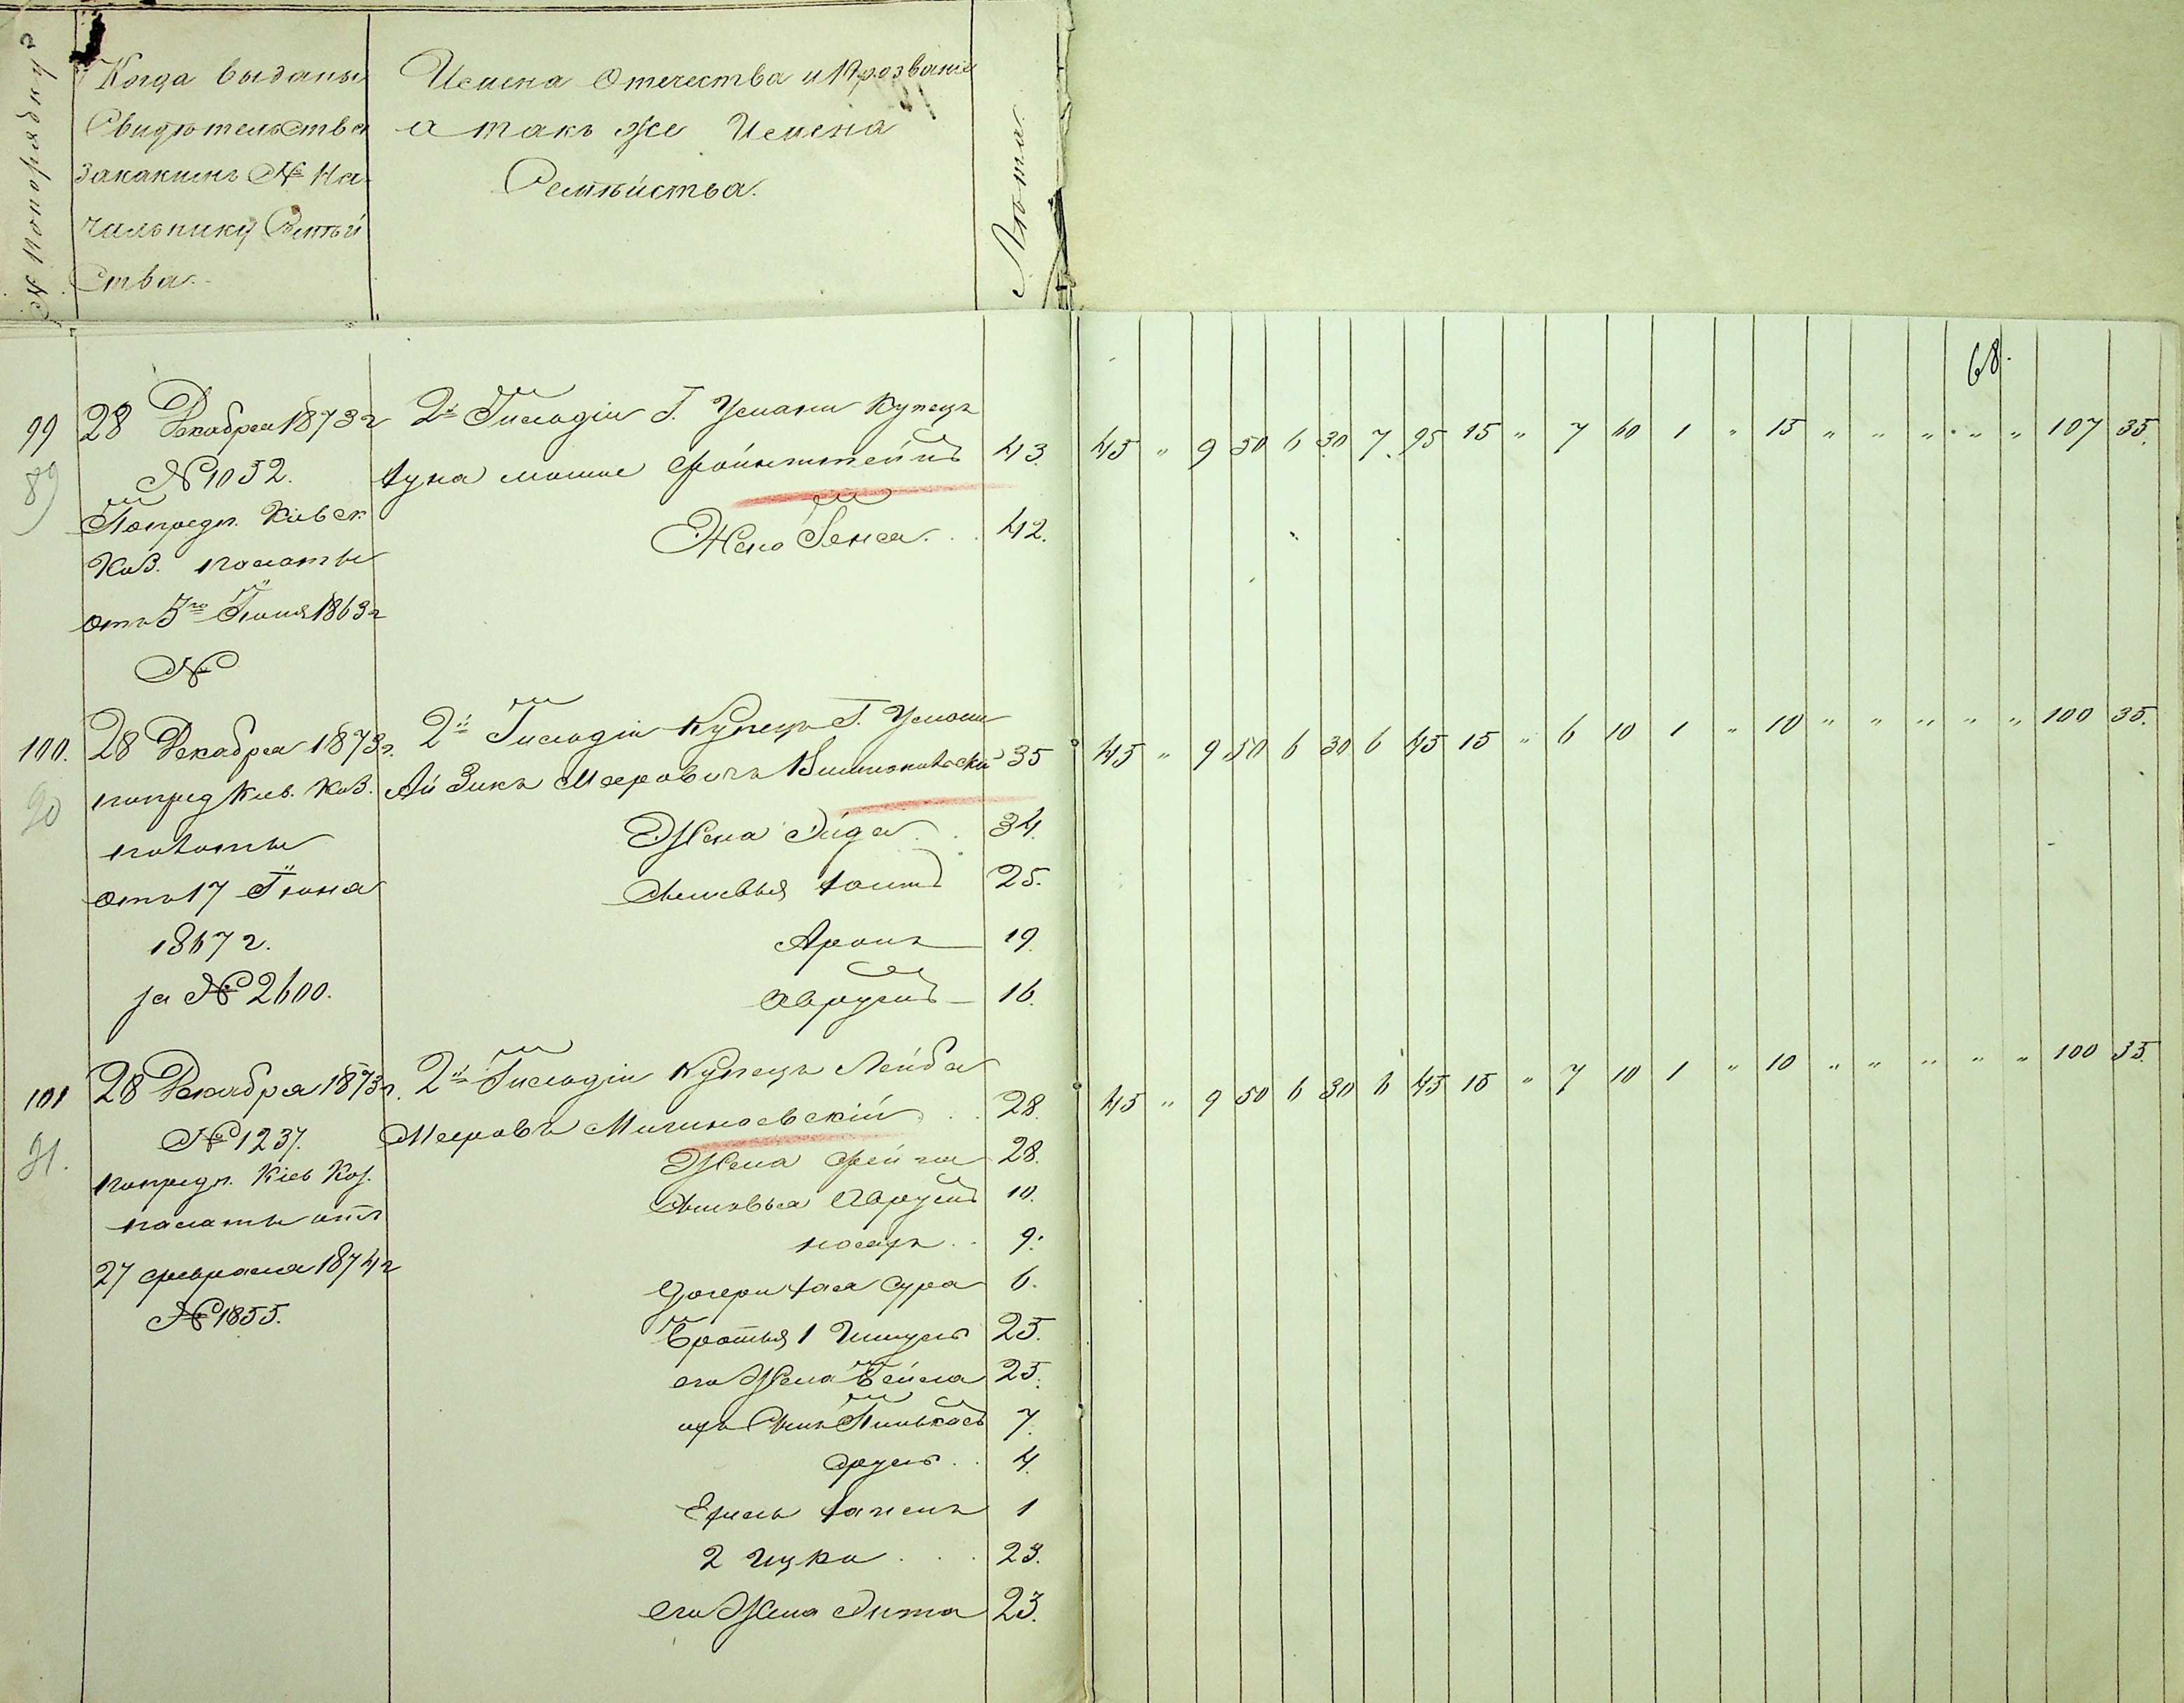 № по порядку
Когда выданы
Свидѣтельства
закакимъ № На
чальнику Семѣй
ства.
Имена Отечества и Прозвание
а такъ же Имена
Семѣйства.
Лѣта.
68.
99
89
28 Декабря 1873 г
№ 1052.
Попредп. Кіевск
Каз. палаты
отъ 5го Іюня 1863 г
№
2й Гильдіи Г. Умани Купецъ
мошко Файнштейнъ 43.
Жена Генся. . 42.
45 " 9 50 6 30 7 95 15 " 7 60 1 " 15 " " " " " 107 35.
100.
90
28 Декабря 1873 г.
попред Кіев. Каз.
палаты
отъ 17 Іюня
1867 г.
за № 2600.
2й Гильдіи Купецъ Г. Умани
Айзикъ Мееровичъ 35
Жена . . 34.
Сыновья 25.
Аронъ 19.
Аврумъ 16.
45 " 9 50 6 30 6 45 15 " 6 10 1 " 10 " " " " " 100 35.
101
91.
28 Декабря 1873 г.
№ 1237.
попредп. Кіев Каз.
палаты отъ
27 февраля 1874 г
№ 1855.
2й Гильдіи Купецъ Лейба
Мееровъ . . 28.
Жена Фейга 28.
Сыновья Аврумъ 10.
. . 9.
Дочери Хая Сура 6.
Братья 1 25.
его Жена Бейла 25.
ихъ Сынъ Пинькасъ 7.
Сруль . . 4.
1
2 Ицко . . . 23.
его Жена 23.
45 " 9 50 6 30 6 45 15 " 7 10 1 " 10 " " " " " 100 35.